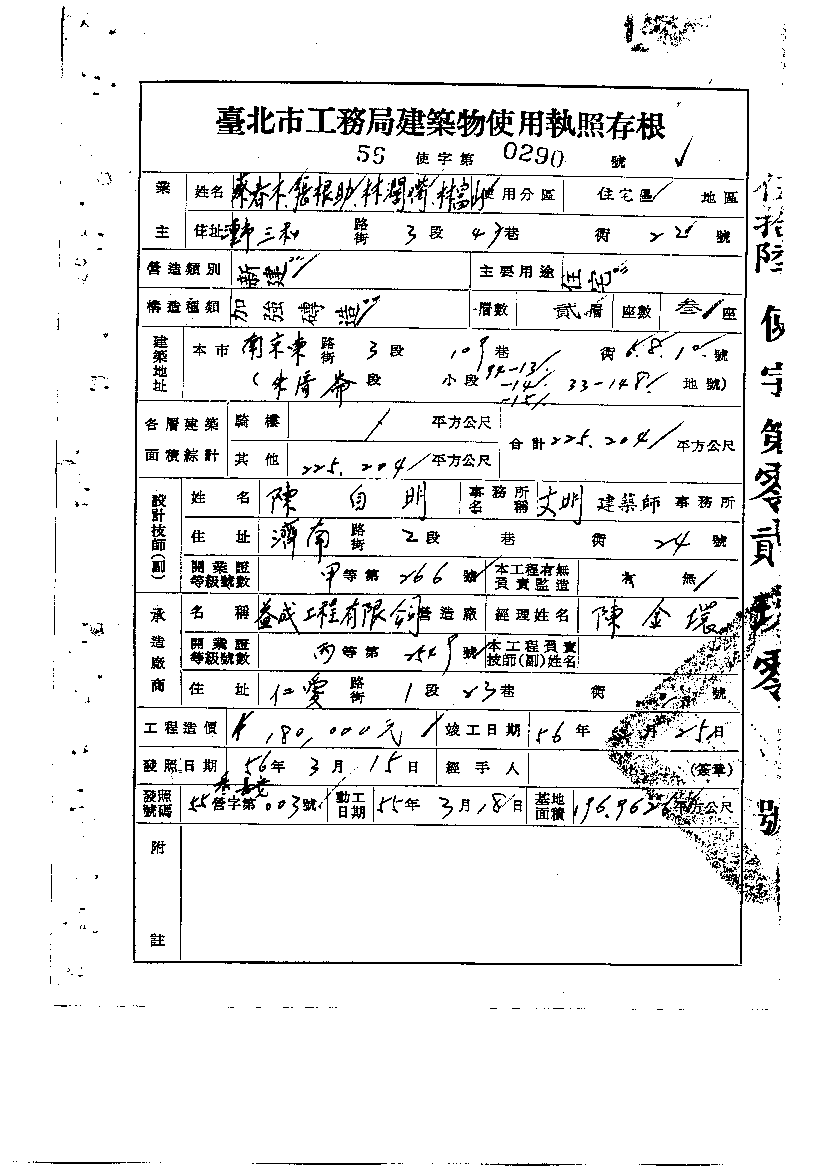 臺北市工務局建築物使用執照存根
56 使字第 0290 號
業主 姓名 蘇春木 張根助 林 林富 使用分區 住宅區 地區
住址 三和 路街 3段 47巷 衖 22號
營造類別 新建 主要用途 住宅
構造種類 加強磚造 層數 貳層 座數 叁座
建築地址 本市 南京東 路街 3段 109巷 衖 6.8.10.號
(朱厝崙 段 小段 94-13 -14 -15 33-148 地號)
各層建築面積綜計 騎樓 / 平方公尺 合計 225.204 平方公尺
其他 225.204 平方公尺
設計技師(副) 姓名 陳自明 事務所名稱 文明 建築師事務所
住址 濟南 路街 2段 巷 衖 24號
開業證等級號數 甲等第266號 本工程有無負責監造 有 無
承造廠商 名稱 益成工程有限公司 營造廠 經理姓名 陳金環
開業證等級號數 丙等第2549號 本工程負責技師(副)姓名
住址 仁愛 路街 1段 23巷 衖 號
工程造價 ¥180,000元 竣工日期 56年 月25日
發照日期 56年3月15日 經手人 (簽章)
發照號碼 55營字第003號 動工日期 55年3月18日 基地面積 196.9626平方公尺
附註
伍拾陸使字第零貳玖零號